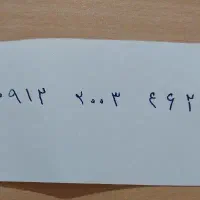 ۰۹۱۳ ۲۰۰۳ ۴۶۳